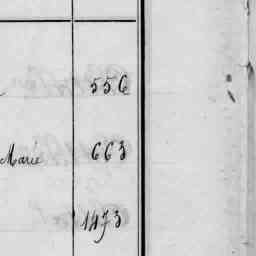 556
Marie 663
1473